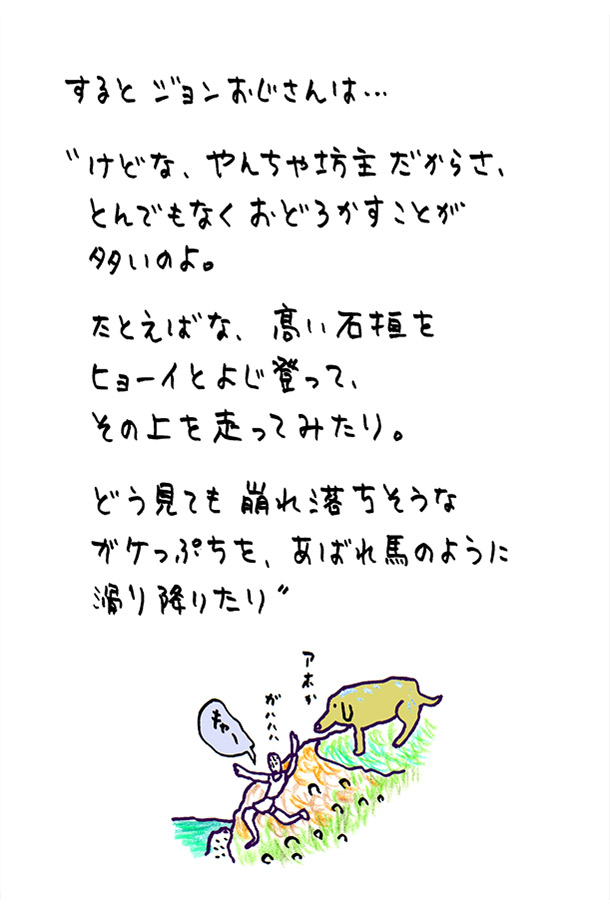 すると ジョンおじさんは…
〝けどな、やんちゃ坊主だからさ、
とんでもなく おどろかすことが
多いのよ。
たとえばな、高い石垣を
ヒョーイとよじ登って、
その上を走ってみたり。
どう見ても 崩れ落ちそうな
ガケっぷちを、あばれ馬のように
滑り降りたり〞
アホか
ガハハハ
キャー